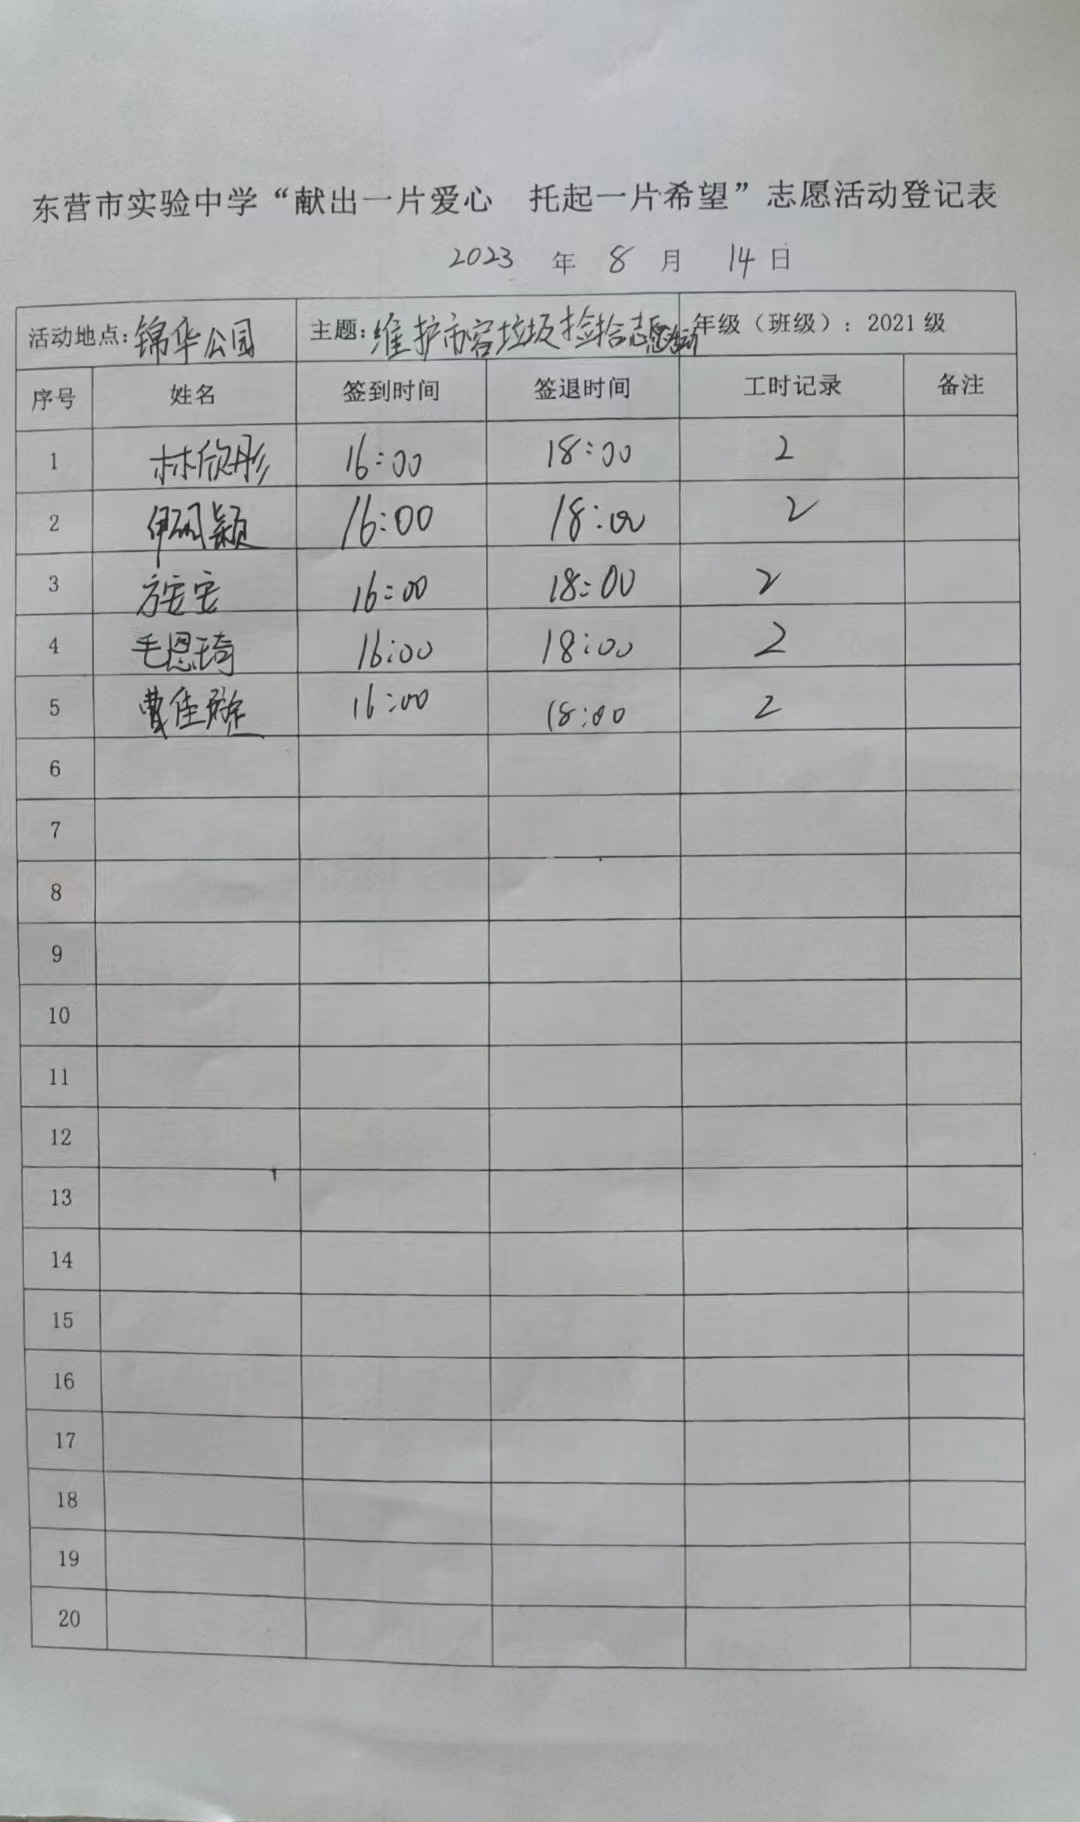 东营市实验中学“献出一片爱心 托起一片希望”志愿活动登记表
2023 年 8 月 14 日
活动地点: 锦华公园 主题: 维护市容垃圾捡拾志愿活动 年级（班级）: 2021 级
序号 姓名 签到时间 签退时间 工时记录 备注
1 林欣彤 16:00 18:00 2
2 伊颖 16:00 18:00 2
3 方安宝 16:00 18:00 2
4 毛恩琦 16:00 18:00 2
5 曹佳璇 16:00 18:00 2
6
7
8
9
10
11
12
13
14
15
16
17
18
19
20